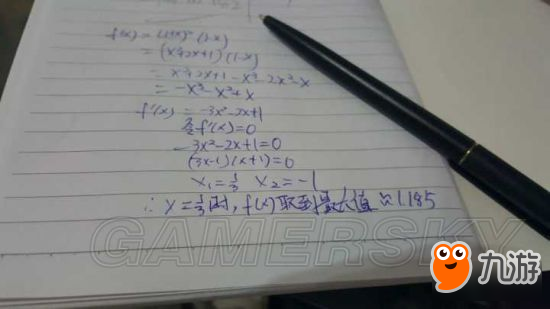 f(x)=(1+x)²(1-x)
=(x²+2x+1)(1-x)
=x²+2x+1-x³-2x²-x
=-x³-x²+x
f'(x)=-3x²-2x+1
令f'(x)=0
-3x²-2x+1=0
(3x-1)(x+1)=0
x₁=⅓ x₂=-1
∴x=⅓时,f(x)取到最大值≈1.185
GAMERSKY
九游